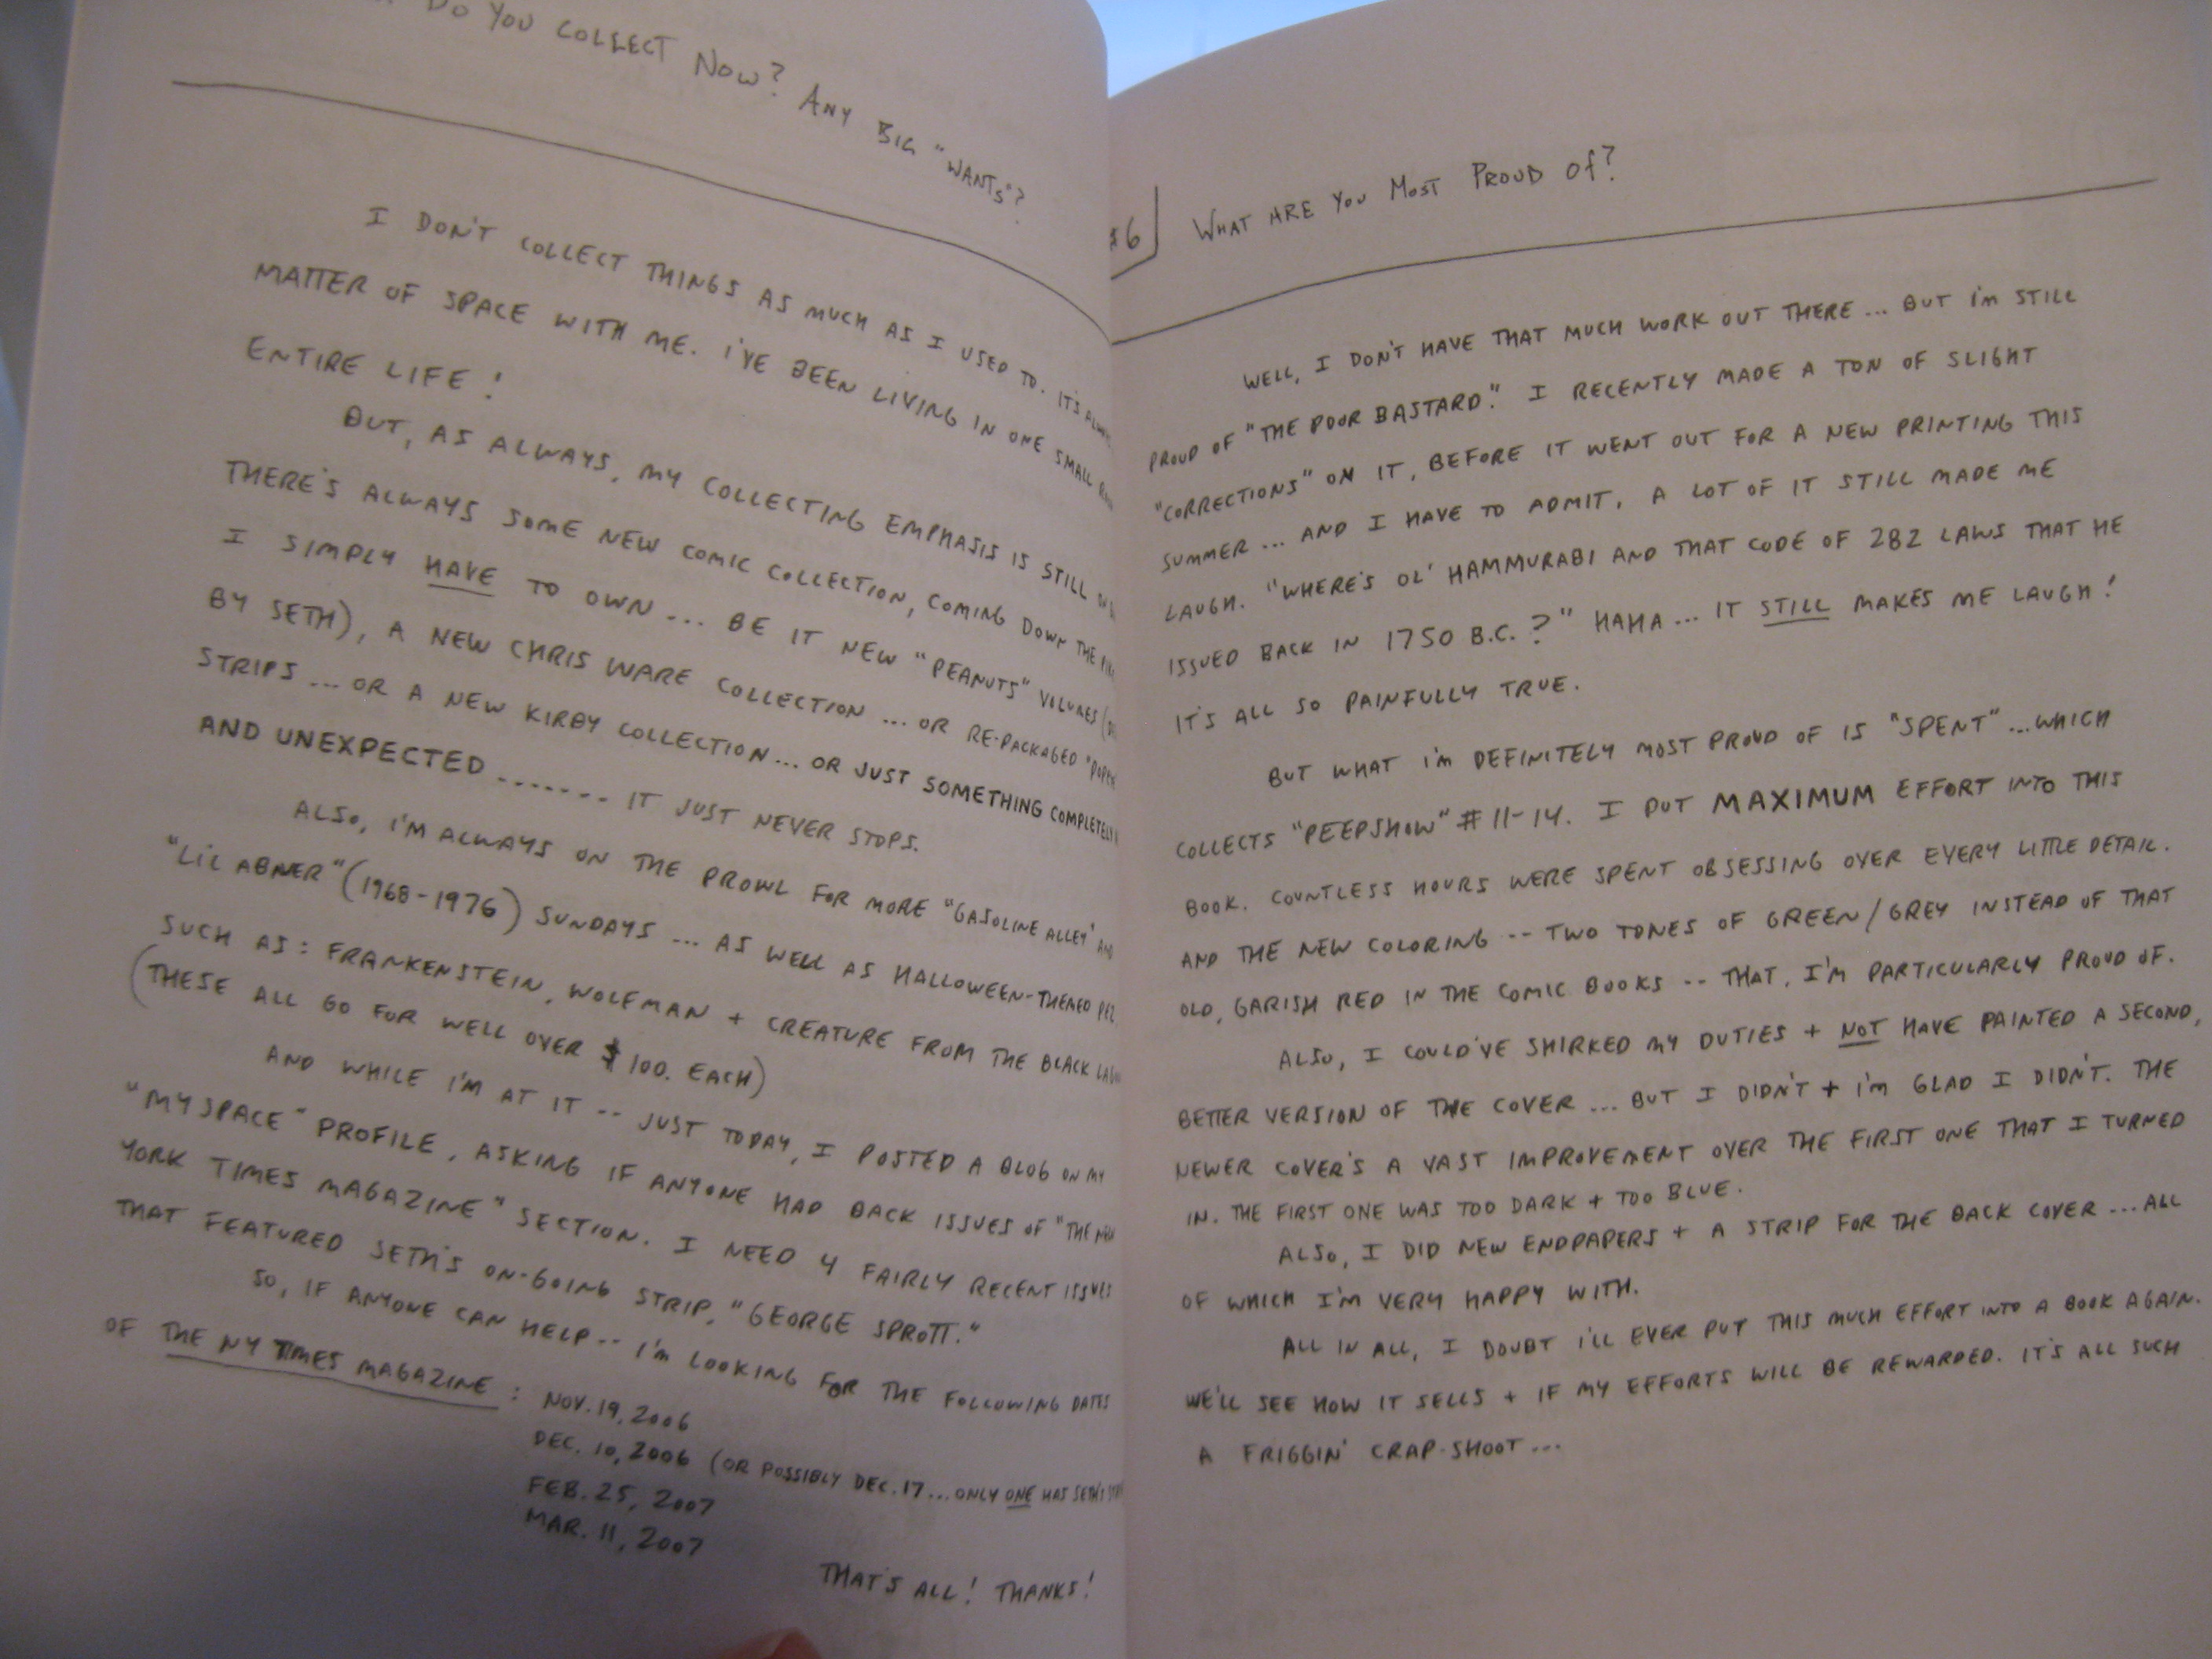 DO YOU COLLECT NOW? ANY BIG "WANTS"?
I DON'T COLLECT THINGS AS MUCH AS I USED TO. IT'S
MATTER OF SPACE WITH ME. I'VE BEEN LIVING IN ONE SMALL
ENTIRE LIFE!
BUT, AS ALWAYS, MY COLLECTING EMPHASIS IS STILL
THERE'S ALWAYS SOME NEW COMIC COLLECTION, COMING DOWN THE
I SIMPLY HAVE TO OWN... BE IT NEW "PEANUTS" VOLUMES
BY SETH), A NEW CHRIS WARE COLLECTION... OR RE-PACKAGED
STRIPS... OR A NEW KIRBY COLLECTION... OR JUST SOMETHING COMPLETELY
AND UNEXPECTED....... IT JUST NEVER STOPS.
ALSO, I'M ALWAYS ON THE PROWL FOR MORE "GASOLINE ALLEY" AND
"LI'L ABNER" (1968-1976) SUNDAYS... AS WELL AS HALLOWEEN-THEMED PEZ
SUCH AS: FRANKENSTEIN, WOLFMAN + CREATURE FROM THE BLACK
(THESE ALL GO FOR WELL OVER $100. EACH)
AND WHILE I'M AT IT -- JUST TODAY, I POSTED A BLOG ON MY
"MYSPACE" PROFILE, ASKING IF ANYONE HAD BACK ISSUES OF "THE NEW
YORK TIMES MAGAZINE" SECTION. I NEED 4 FAIRLY RECENT ISSUES
THAT FEATURED SETH'S ON-GOING STRIP, "GEORGE SPROTT."
SO, IF ANYONE CAN HELP -- I'M LOOKING FOR THE FOLLOWING DATES
OF THE NY TIMES MAGAZINE: NOV. 19, 2006
DEC. 10, 2006 (OR POSSIBLY DEC. 17... ONLY ONE HAS SETH'S
FEB. 25, 2007
MAR. 11, 2007
THAT'S ALL! THANKS!
#6 WHAT ARE YOU MOST PROUD OF?
WELL, I DON'T HAVE THAT MUCH WORK OUT THERE... BUT I'M STILL
PROUD OF "THE POOR BASTARD." I RECENTLY MADE A TON OF SLIGHT
"CORRECTIONS" ON IT, BEFORE IT WENT OUT FOR A NEW PRINTING THIS
SUMMER... AND I HAVE TO ADMIT, A LOT OF IT STILL MADE ME
LAUGH. "WHERE'S OL' HAMMURABI AND THAT CODE OF 282 LAWS THAT HE
ISSUED BACK IN 1750 B.C.?" HAHA... IT STILL MAKES ME LAUGH!
IT'S ALL SO PAINFULLY TRUE.
BUT WHAT I'M DEFINITELY MOST PROUD OF IS "SPENT"... WHICH
COLLECTS "PEEPSHOW" #11-14. I PUT MAXIMUM EFFORT INTO THIS
BOOK. COUNTLESS HOURS WERE SPENT OBSESSING OVER EVERY LITTLE DETAIL.
AND THE NEW COLORING -- TWO TONES OF GREEN/GREY INSTEAD OF THAT
OLD, GARISH RED IN THE COMIC BOOKS -- THAT, I'M PARTICULARLY PROUD OF.
ALSO, I COULD'VE SHIRKED MY DUTIES + NOT HAVE PAINTED A SECOND,
BETTER VERSION OF THE COVER... BUT I DIDN'T + I'M GLAD I DIDN'T. THE
NEWER COVER'S A VAST IMPROVEMENT OVER THE FIRST ONE THAT I TURNED
IN. THE FIRST ONE WAS TOO DARK + TOO BLUE.
ALSO, I DID NEW ENDPAPERS + A STRIP FOR THE BACK COVER... ALL
OF WHICH I'M VERY HAPPY WITH.
ALL IN ALL, I DOUBT I'LL EVER PUT THIS MUCH EFFORT INTO A BOOK AGAIN.
WE'LL SEE HOW IT SELLS + IF MY EFFORTS WILL BE REWARDED. IT'S ALL SUCH
A FRIGGIN' CRAP-SHOOT...